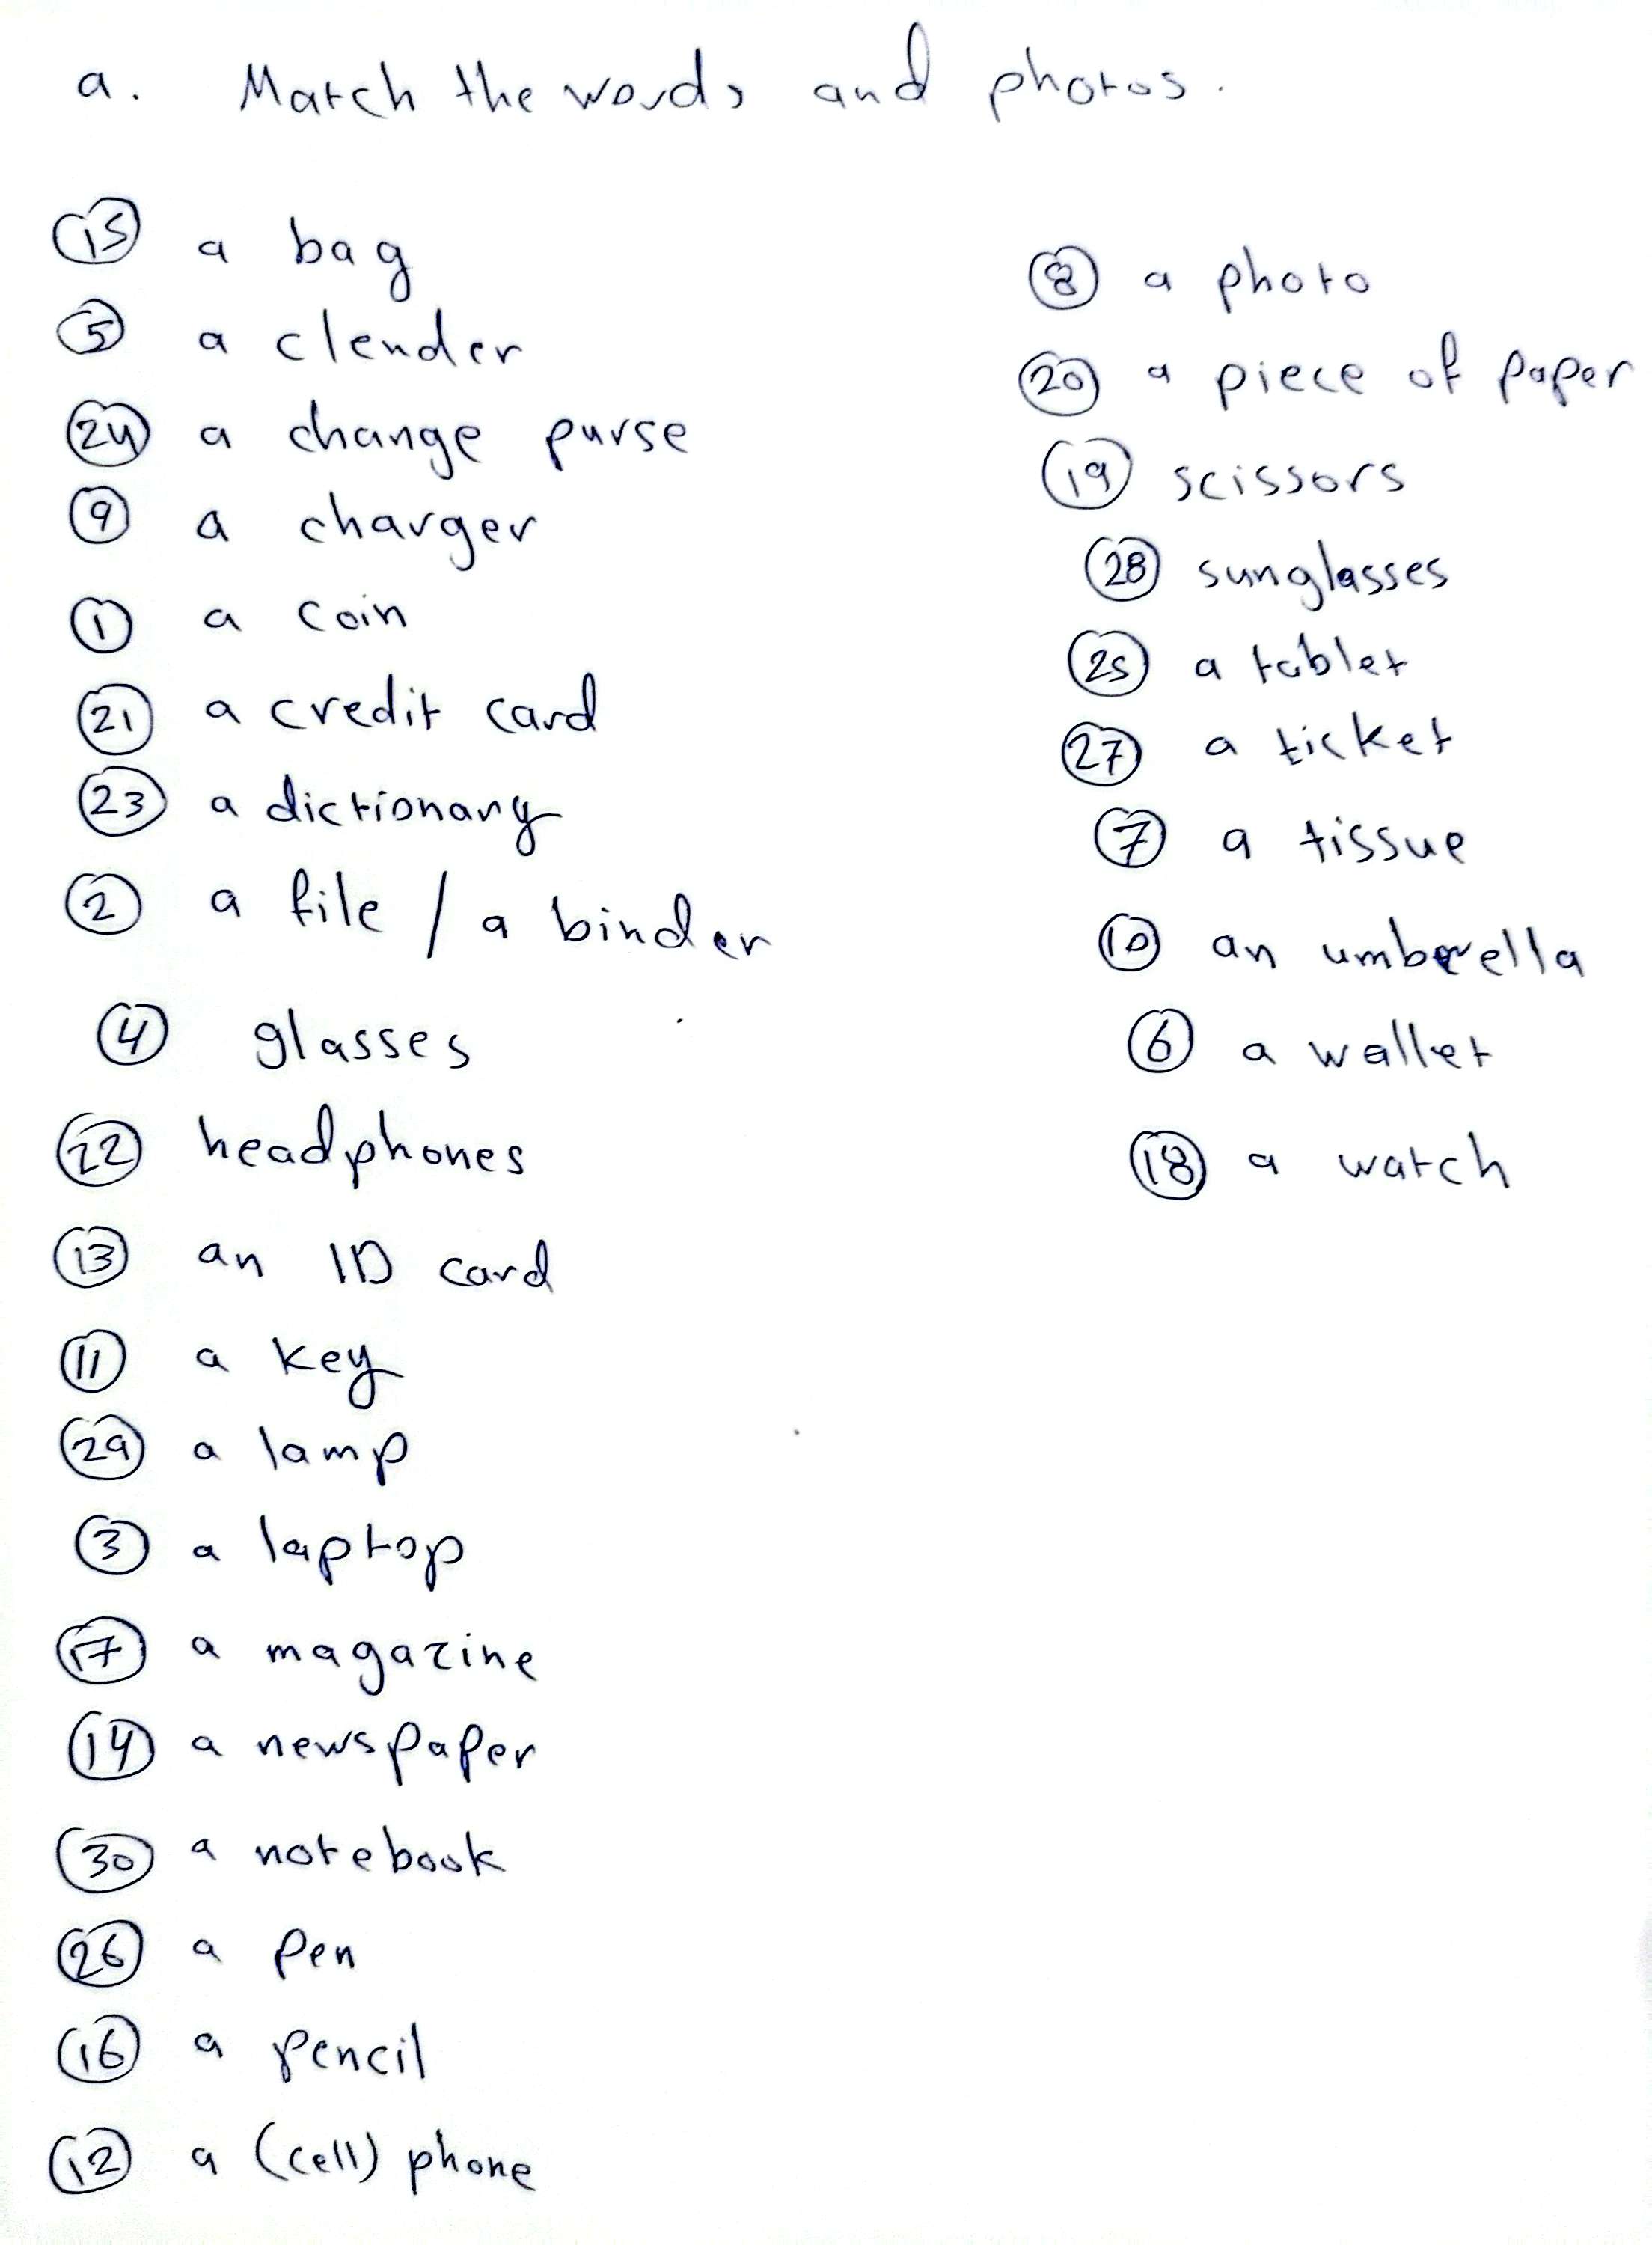 a. Match the words and photos.
15 a bag
5 a clender
24 a change purse
9 a charger
1 a coin
21 a credit card
23 a dictionary
2 a file / a binder
4 glasses
22 headphones
13 an ID card
11 a key
29 a lamp
3 a laptop
17 a magazine
14 a newspaper
30 a notebook
26 a pen
16 a pencil
12 a (cell) phone
8 a photo
20 a piece of paper
19 scissors
28 sunglasses
25 a tablet
27 a ticket
7 a tissue
10 an umbrella
6 a wallet
18 a watch